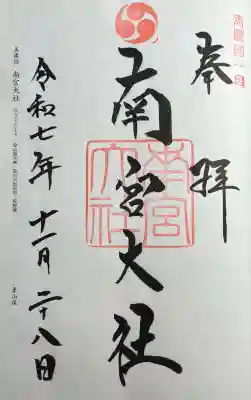 奉拝
美濃国一宮
南宮大社
南宮大社
令和七年十一月二十八日
南宮大社